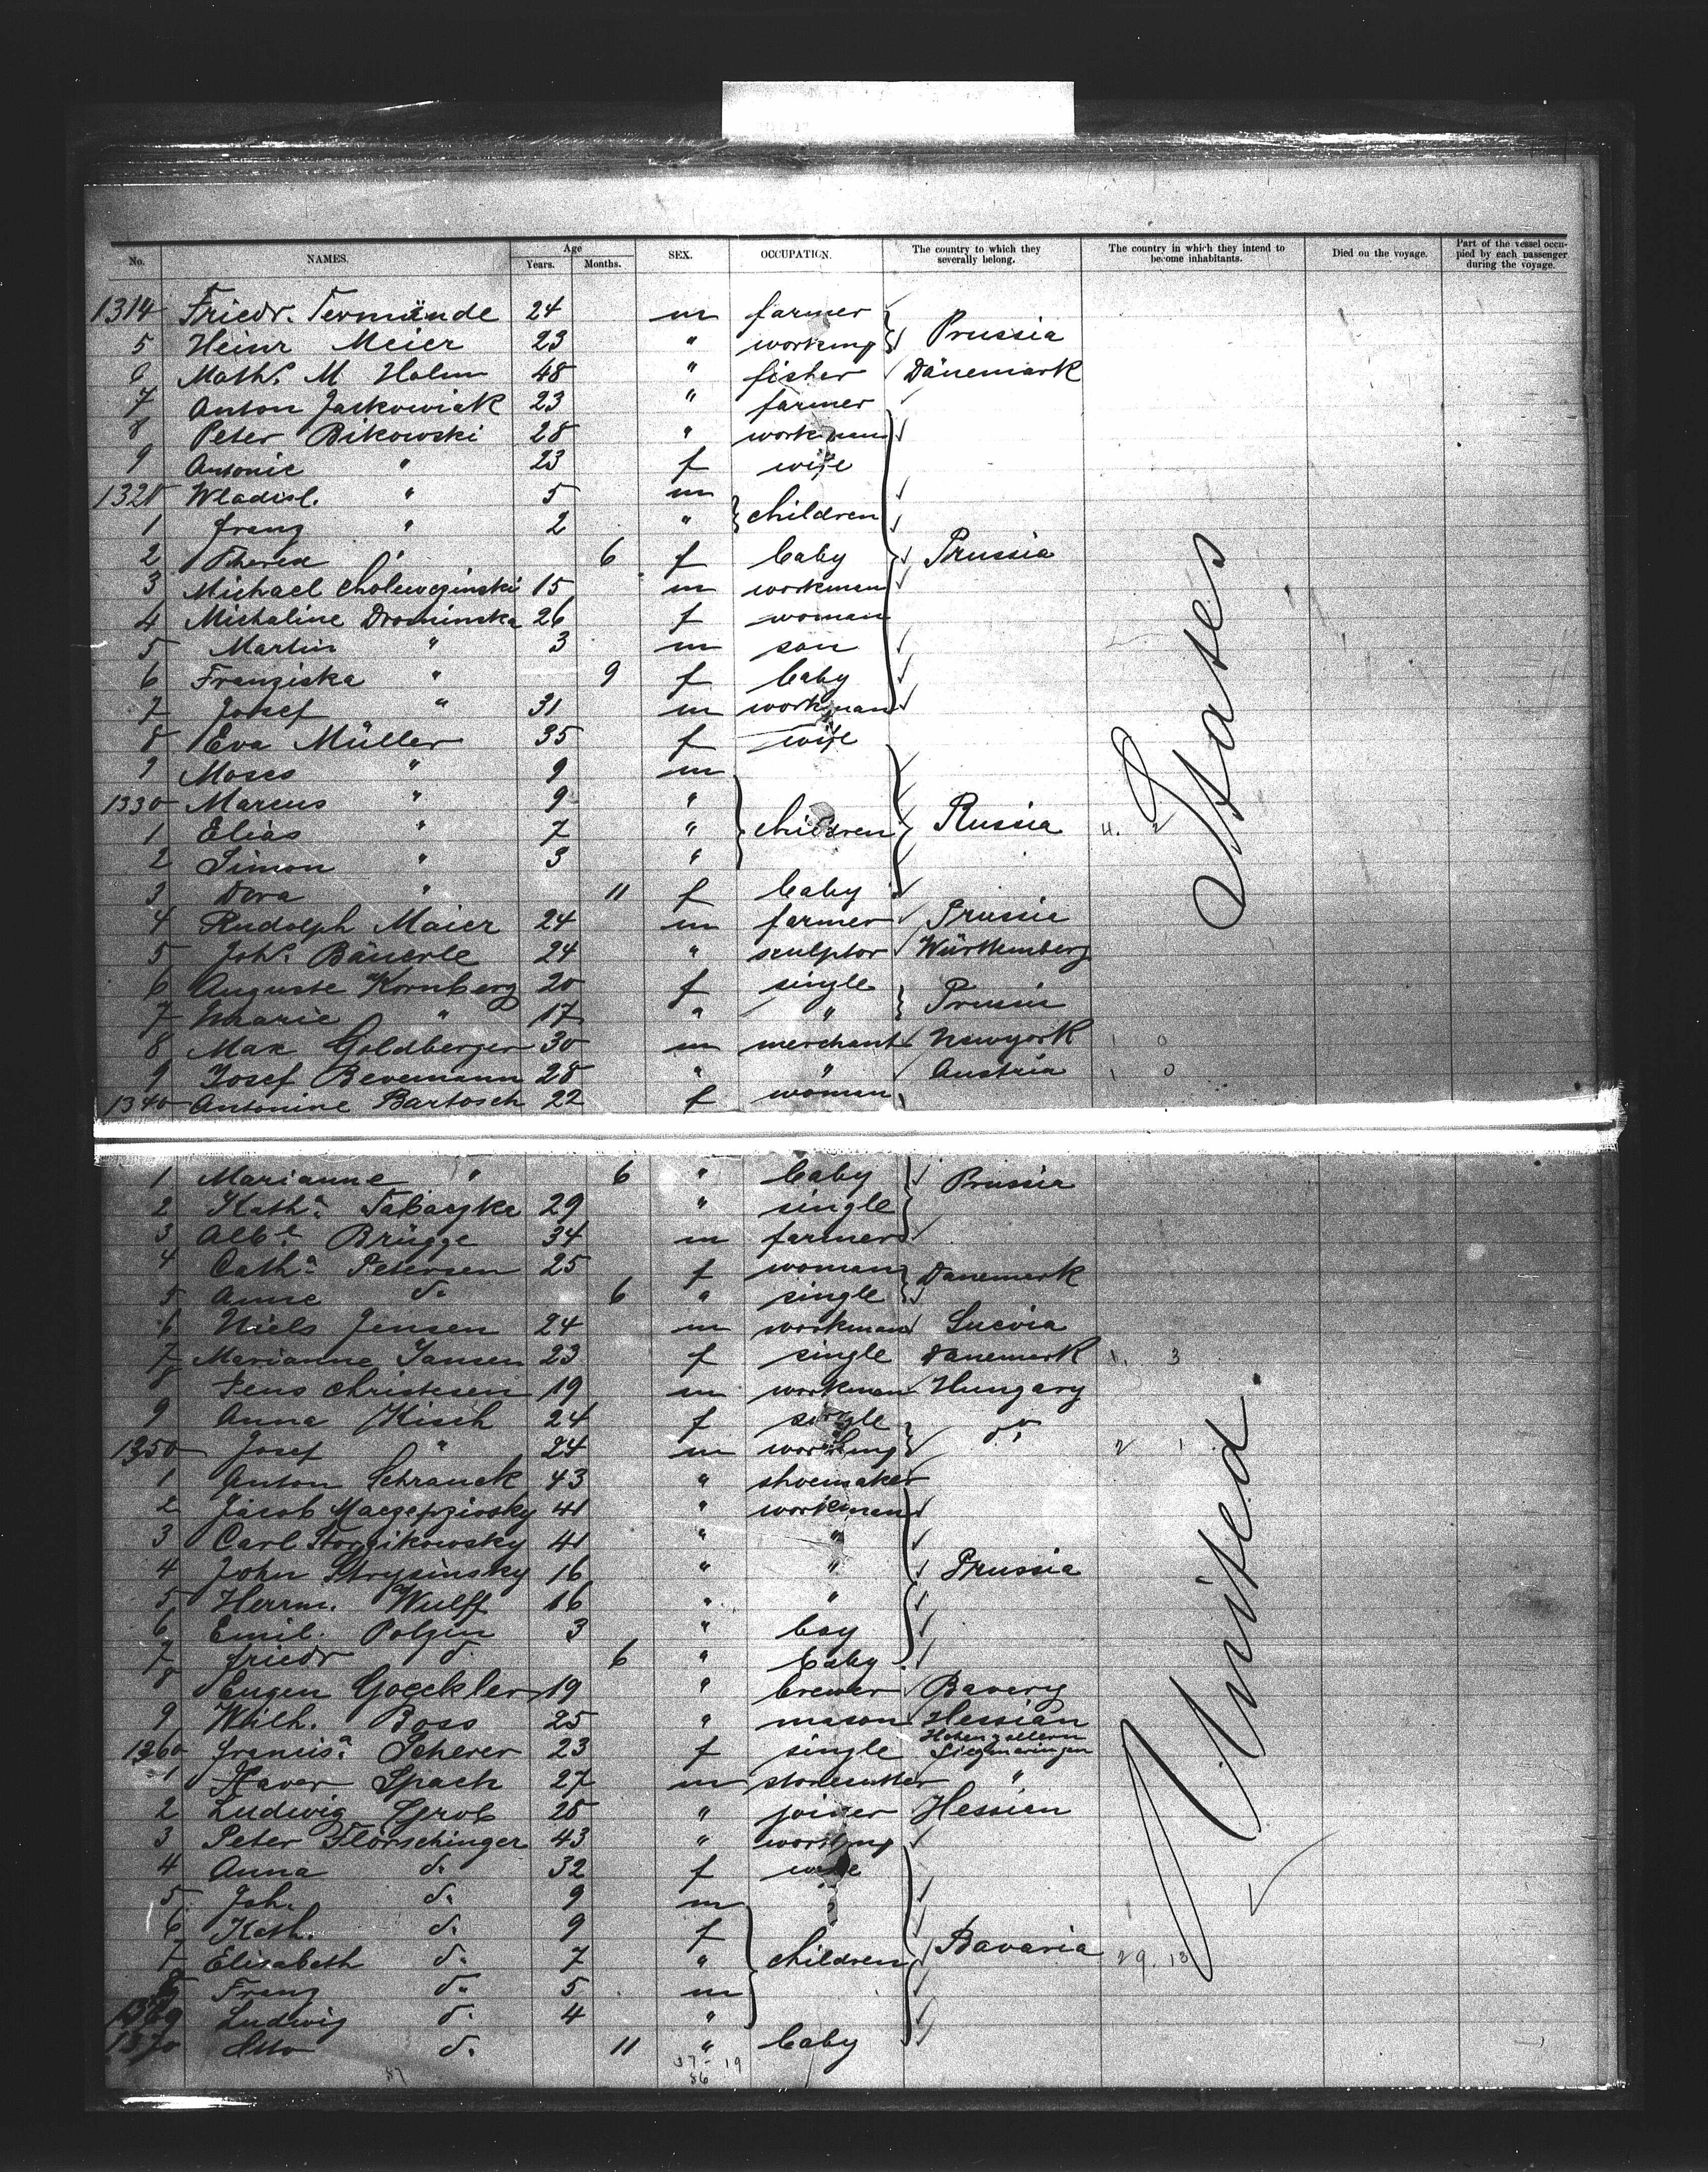 No. NAMES. Age Years. Months. SEX. OCCUPATION. The country to which they severally belong. The country in which they intend to become inhabitants. Died on the voyage. Part of the vessel occupied by each passenger during the voyage.
1314 Friedr. Termünde 24 m farmer
5 Heinr Meier 23 " working Prussia
6 Math. M Holm 48 " fisher Dänemark
7 Anton Jaskowiak 23 " farmer
8 Peter Bikowski 28 " workman
9 Antonie " 23 f wife
1320 Wladisl. " 5 m
1 Franz " 2 " children
2 Theresa " 6 f baby Prussia
3 Michael Cholewczinski 15 m workman
4 Michaline Drominska 26 f woman
5 Martin " 3 m son
6 Franziska " 9 f baby
7 Josef " 31 m workman
8 Eva Müller 35 f wife
9 Moses " 9 m
1330 Marcus " 9 "
1 Elias " 7 " children Russia 4. 2
2 Simon " 3 "
3 Dora " 11 f baby
4 Rudolph Maier 24 m farmer Prussia
5 Joh. Bäuerle 24 " sculptor Württemberg
6 Auguste Kornberg 20 f single
7 Marie " 17 " " Prussia
8 Max Goldberger 30 m merchant Newyork 1 0
9 Josef Bevemann 28 " " Austria 1 0
1340 Antonine Bartosch 22 f woman
1 Marianne " 6 " baby Prussia
2 Kath.a Tabaczka 29 " single
3 Alb.t Brügge 34 m farmer
4 Cath.a Petersen 25 f woman Danemark
5 Anne do. 6 " single
6 Niels Jensen 24 m workman Suevia
7 Marianne Jansen 23 f single Danemark 1. 3
8 Jens Christesen 19 m workman Hungary
9 Anna Kisch 24 f single do.
1350 Josef " 24 m working 2 1
1 Anton Schranck 43 " shoemaker
2 Jacob 41 " workman
3 Carl 41 " "
4 John 16 " " Prussia
5 Herrm. Wulff 16 " "
6 Emil. Polzin 3 " boy
7 Friedr do. 6 " baby
8 Eugen Goeckler 19 " brewer Bavery
9 Wilh. Boss 25 " mason Hessian
1360 Francis.a Scherer 23 f single Hohenzollern Siegmaringen
1 Xaver Spach 27 m stonecutter "
2 Ludwig Grob 25 " joiner Hessien
3 Peter Flörschinger 43 " working
4 Anna do. 32 f wife
5 Joh. do. 9 m
6 Kath. do. 9 f
7 Elisabeth do. 7 " children Bavaria 29. 13
8 Franz do. 5 m
1369 Ludwig do. 4 "
1370 Otto do. 11 " baby
United States
87 37-19
86